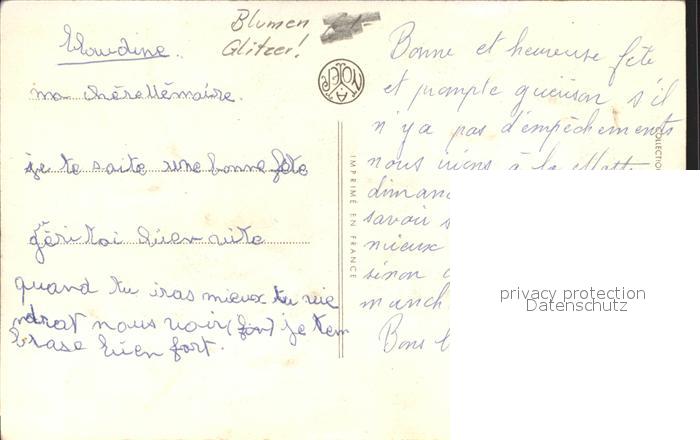 Blumen
Glitzer!
Claudine.
ma chère Mémaire.
je te saite une bonne fête
géri toi bien vite
quand tu iras mieux tu vie
ndrat nous voir (fin) je tem
brase bien fort.
IMPRIMÉ EN FRANCE
Bonne et heureuse fête
et prompte guérison s'il
n'y a pas d'empêchements
nous irons à la
diman
savoir s
mieux
sinon
manch
Bons
COLLECTION
privacy protection
Datenschutz